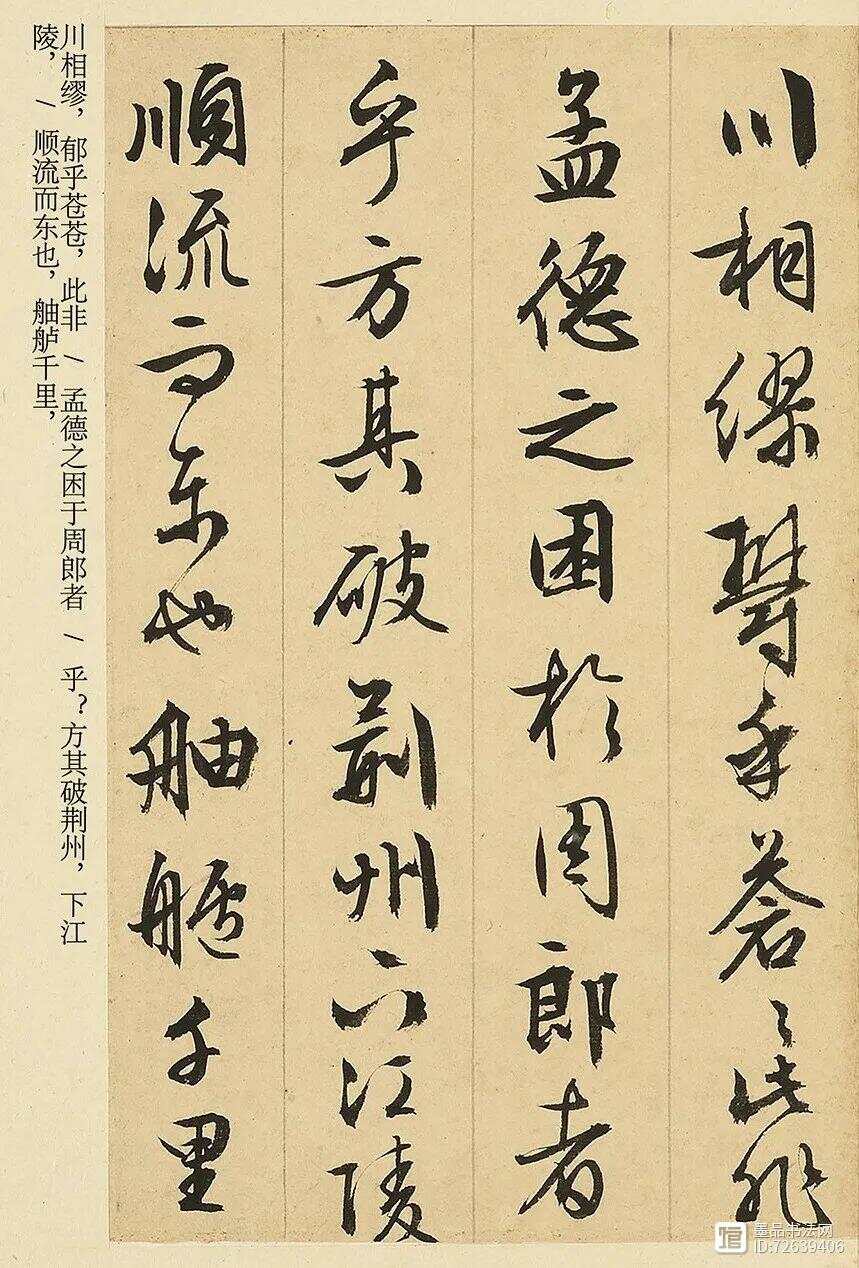 川相缪鬱乎苍〻此非
孟德之困於周郎者
乎方其破荆州下江陵
顺流而东也舳舻千里
川相缪，郁乎苍苍，此非 \ 孟德之困于周郎者 \ 乎？方其破荆州，下江
陵， \ 顺流而东也，舳舻千里，
墨品书法网
ID:72639406